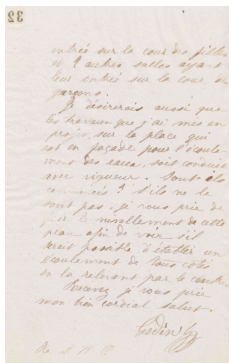 32
entrée sur la cour des filles
et 2 autres salles ayant
leur entrée sur la cour de
garçons.
Je désirerais aussi que
les travaux que j'ai mis en
projet, sur la place qui
est en façade pour l'écoule-
ment des eaux, soit conduite
avec vigueur. Sont ils
commencés ? S'ils ne le
sont pas, je vous prie de
faire le nivellement de cette
peau afin de voir s'il
serait possible d'établir un
écoulement de tous côtés
en la relevant par le centre.
Recevez je vous prie
mon bien cordial salut.
Godin